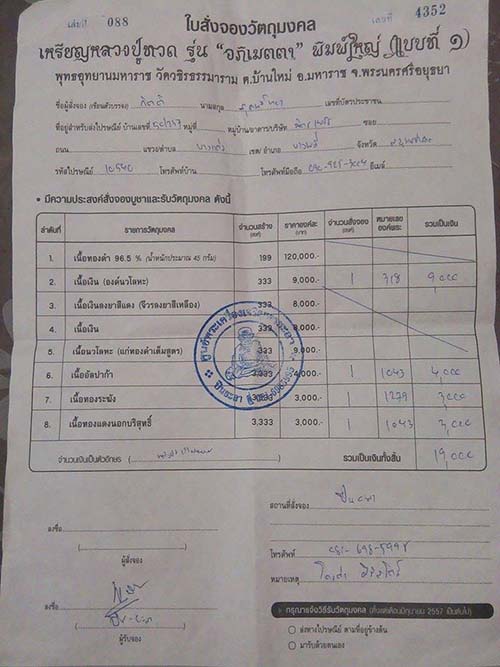 เล่มที่ 088
เลขที่ 4352
ใบสั่งจองวัตถุมงคล
เหรียญหลวงปู่ทวด รุ่น "อภิเมตตา" พิมพ์ใหญ่ (แบบที่ ๑)
พุทธอุทยานมหาราช วัดวชิรธรรมาราม ต.บ้านใหม่ อ.มหาราช จ.พระนครศรีอยุธยา
ชื่อผู้สั่งจอง (เขียนตัวบรรจง) กิตติ นามสกุล เลขที่บัตรประชาชน
ที่อยู่สำหรับส่งไปรษณีย์ บ้านเลขที่ หมู่ที่ หมู่บ้าน/อาคาร/บริษัท ซอย
ถนน แขวง/ตำบล บางแก้ว เขต/อำเภอ บางพลี จังหวัด
รหัสไปรษณีย์ 10540 โทรศัพท์บ้าน โทรศัพท์มือถือ อีเมล์
• มีความประสงค์สั่งจองบูชาและรับวัตถุมงคล ดังนี้
ลำดับที่ รายการวัตถุมงคล จำนวนสร้าง (องค์) ราคาองค์ละ (บาท) จำนวนสั่งจอง (องค์) หมายเลของค์พระ รวมเป็นเงิน
1. เนื้อทองคำ 96.5 % (น้ำหนักประมาณ 45 กรัม) 199 120,000.-
2. เนื้อเงิน (องค์นวโลหะ) 333 9,000.- 1 318 9000
3. เนื้อเงินลงยาสีแดง (จีวรลงยาสีเหลือง) 333 8,000.-
4. เนื้อเงิน 333 8,000.-
5. เนื้อนวโลหะ (แก่ทองคำเต็มสูตร) 333 9,000.-
6. เนื้ออัลปาก้า 3,333 4,000.- 1 1043 4,000
7. เนื้อทองระฆัง 3,333 3,000.- 1 1279 3,000
8. เนื้อทองแดงนอกบริสุทธิ์ 3,333 3,000.- 1 1043 3,000
จำนวนเงินเป็นตัวอักษร ( ) รวมเป็นเงินทั้งสิ้น 19,000
สถานที่สั่งจอง
ลงชื่อ
( )
ผู้สั่งจอง
โทรศัพท์
หมายเหตุ
ลงชื่อ
( )
ผู้รับจอง
กรุณาแจ้งวิธีรับวัตถุมงคล (ตั้งแต่เดือนมิถุนายน 2557 เป็นต้นไป)
ส่งทางไปรษณีย์ ตามที่อยู่ข้างต้น
มารับด้วยตนเอง